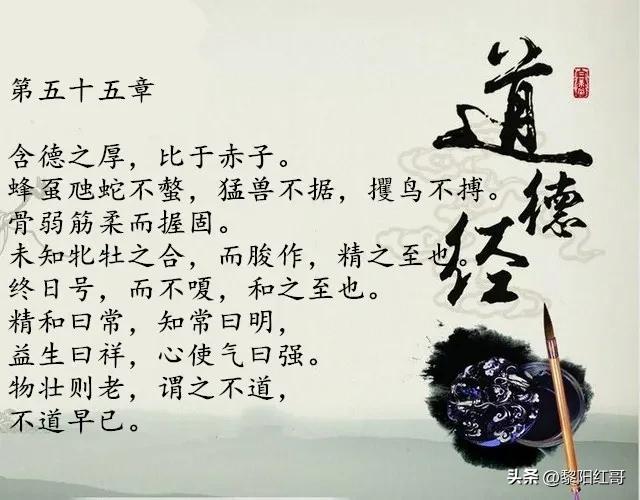 第五十五章
含德之厚，比于赤子。
蜂虿虺蛇不螫，猛兽不据，攫鸟不搏。
骨弱筋柔而握固。
未知牝牡之合，而朘作，精之至也。
终日号，而不嗄，和之至也。
精和曰常，知常曰明，
益生曰祥，心使气曰强。
物壮则老，谓之不道，
不道早已。
道德经
头条 @黎阳红哥